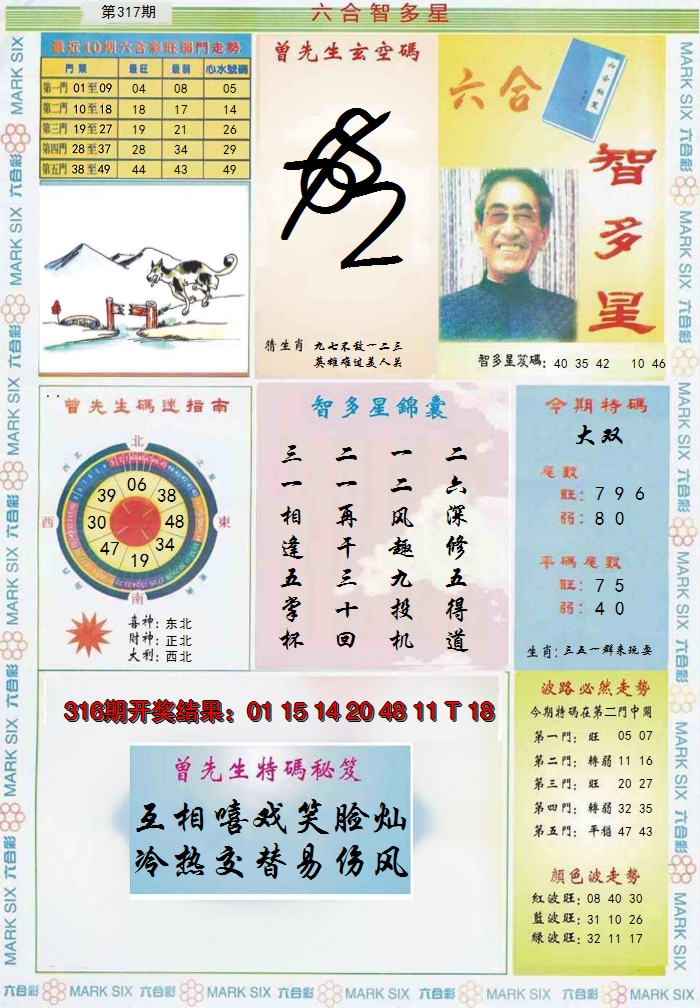 第317期
六合智多星
最近10期六合彩旺弱門走勢
門類 最旺 最弱 心水號碼
第一門 01至09 04 08 05
第二門 10至18 18 17 14
第三門 19至27 19 21 26
第四門 28至37 28 34 29
第五門 38至49 44 43 49
曾先生玄空碼
猜生肖 九七不敌一二三
英雄难过美人关
六合
智多星
智多星笈碼: 40 35 42 10 46
曾先生碼迷指南
北
東
南
西
06
38
48
34
19
47
30
39
喜神: 东北
财神: 正北
大利: 西北
智多星錦囊
二六深修五得道
一二风趣九投机
二一再干三十回
三一相逢五掌杯
今期特碼
大双
尾數
旺: 7 9 6
弱: 8 0
平碼尾數
旺: 7 5
弱: 4 0
生肖: 三五一群来玩耍
316期开奖结果: 01 15 14 20 48 11 T 18
曾先生特碼秘笈
互相嘻戏笑脸灿
冷热交替易伤风
波路必然走勢
今期特碼在第二門中開
第一門: 旺 05 07
第二門: 轉弱 11 16
第三門: 旺 20 27
第四門: 轉弱 32 35
第五門: 平穩 47 43
顏色波走勢
紅波旺: 08 40 30
藍波旺: 31 10 26
绿波旺: 32 11 17
MARK SIX 六合彩